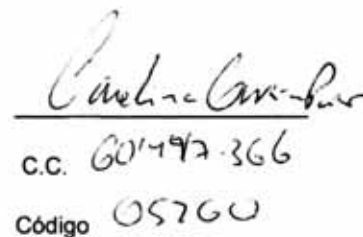 Carolina
C.C. 60'447.366
Código 05760